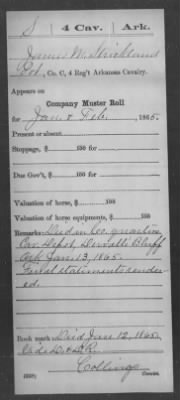 S | 4 Cav. | Ark.
James W. Strickland
Co. C, 4 Reg't Arkansas Cavalry.
Appears on
Company Muster Roll
for Jan & Feb, 1865.
Present or absent
Stoppage, $ 100 for
Due Gov't, $ 100 for
Valuation of horse, $ 100
Valuation of horse equipments, $ 100
Remarks: Died in Co. quarters
Cav. Depot, Devalls Bluff
Ark Jan 13, 1865.
Final statements render-
ed.
Book mark: Died Jan 12, 1865.
Collings
(358) Copyist.